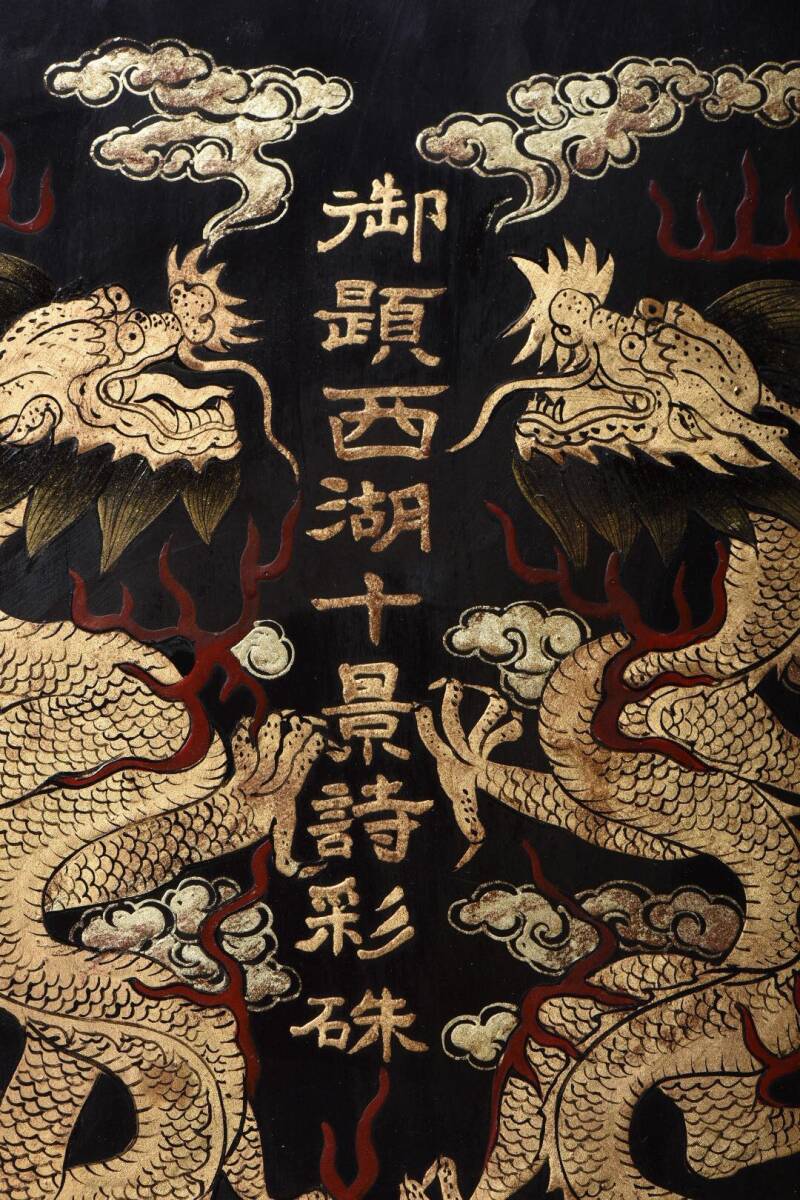 御題西湖十景詩彩硃